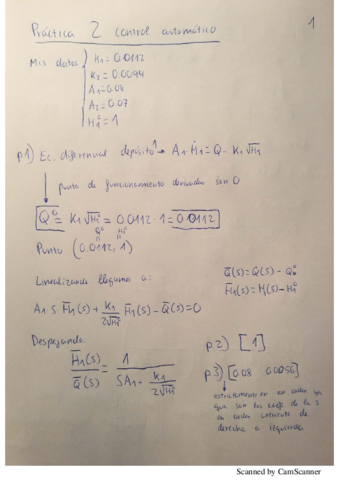 Práctica 2 control automático
1
Mis datos { K1 = 0.0112
K2 = 0.0094
A1 = 0.08
A2 = 0.07
H1⁰ = 1
p.1) Ec. diferencial depósito 1 → A1 Ḣ1 = Q - K1 √H1
punto de funcionamiento derivadas son 0
Q⁰ = K1 √H1⁰ = 0.0112 · 1 = 0.0112
Q⁰ H1⁰
Punto (0.0112, 1)
Linealizando llegamos a:
Q̅(s) = Q(s) - Q⁰
H̅1(s) = H1(s) - H1⁰
A1 S H̅1(s) + K1/2√H1⁰ H̅1(s) - Q̅(s) = 0
Despejando:
H̅1(s)/Q̅(s) = 1/(SA1 + K1/2√H1⁰)
p.2) [1]
p.3) [0.08 0.0056]
que son los coef. de la S
en orden creciente de
derecha a izquierda
Scanned by CamScanner